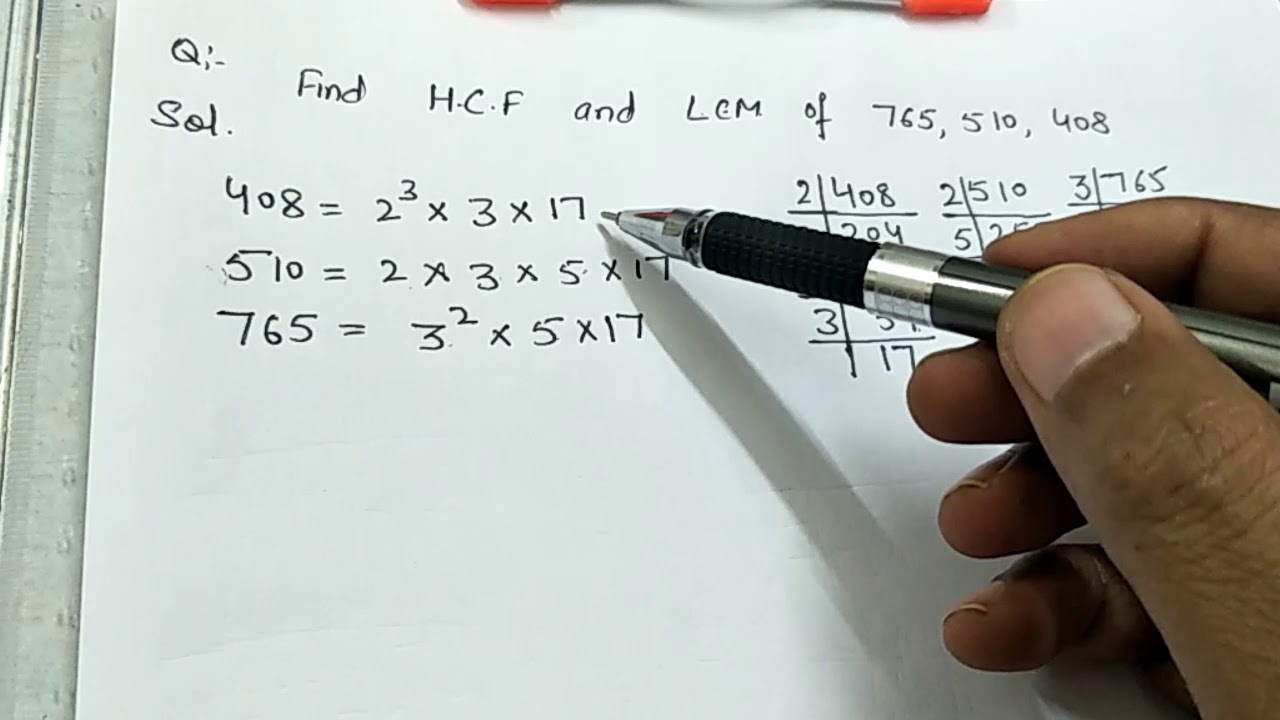 Q:-
Find H.C.F and LCM of 765, 510, 408
Sol.
408 = 2³ × 3 × 17
510 = 2 × 3 × 5 × 17
765 = 3² × 5 × 17
2|408
204
3|
17
2|510
5|
3|765